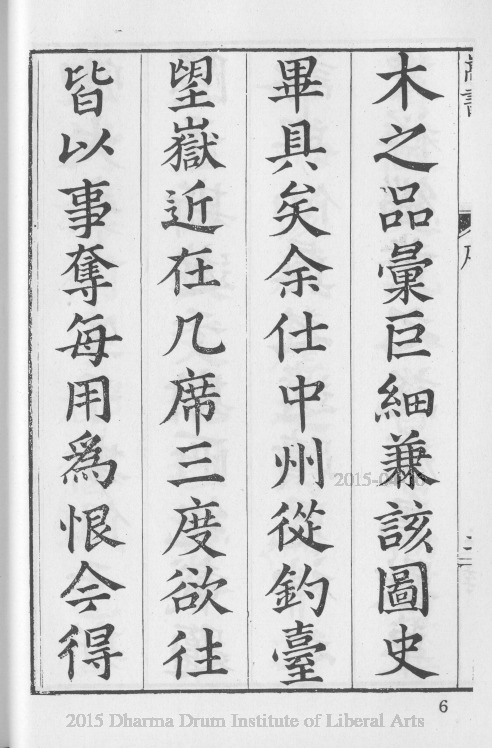 木之品彙巨細兼該圖史
畢具矣余仕中州從釣臺
朢嶽近在几席三度欲往
皆以事奪每用爲恨今得
6
2015 Dharma Drum Institute of Liberal Arts